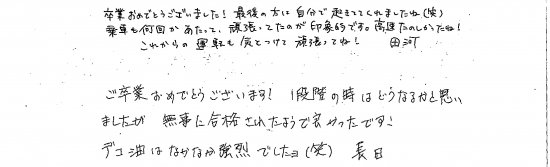 卒業おめでとうございました！最後の方は自分で起きててくれましたね(笑)
乗車も何回かあたって、頑張ってたのが印象的です。高速たのしかったね！
これからの運転も気をつけて頑張ってね！　田河
ご卒業おめでとうございます！1段階の時はどうなるかと思い
ましたが無事に合格されたようで良かったです！
デコ油はなかなか強烈でしたョ(笑)　長日